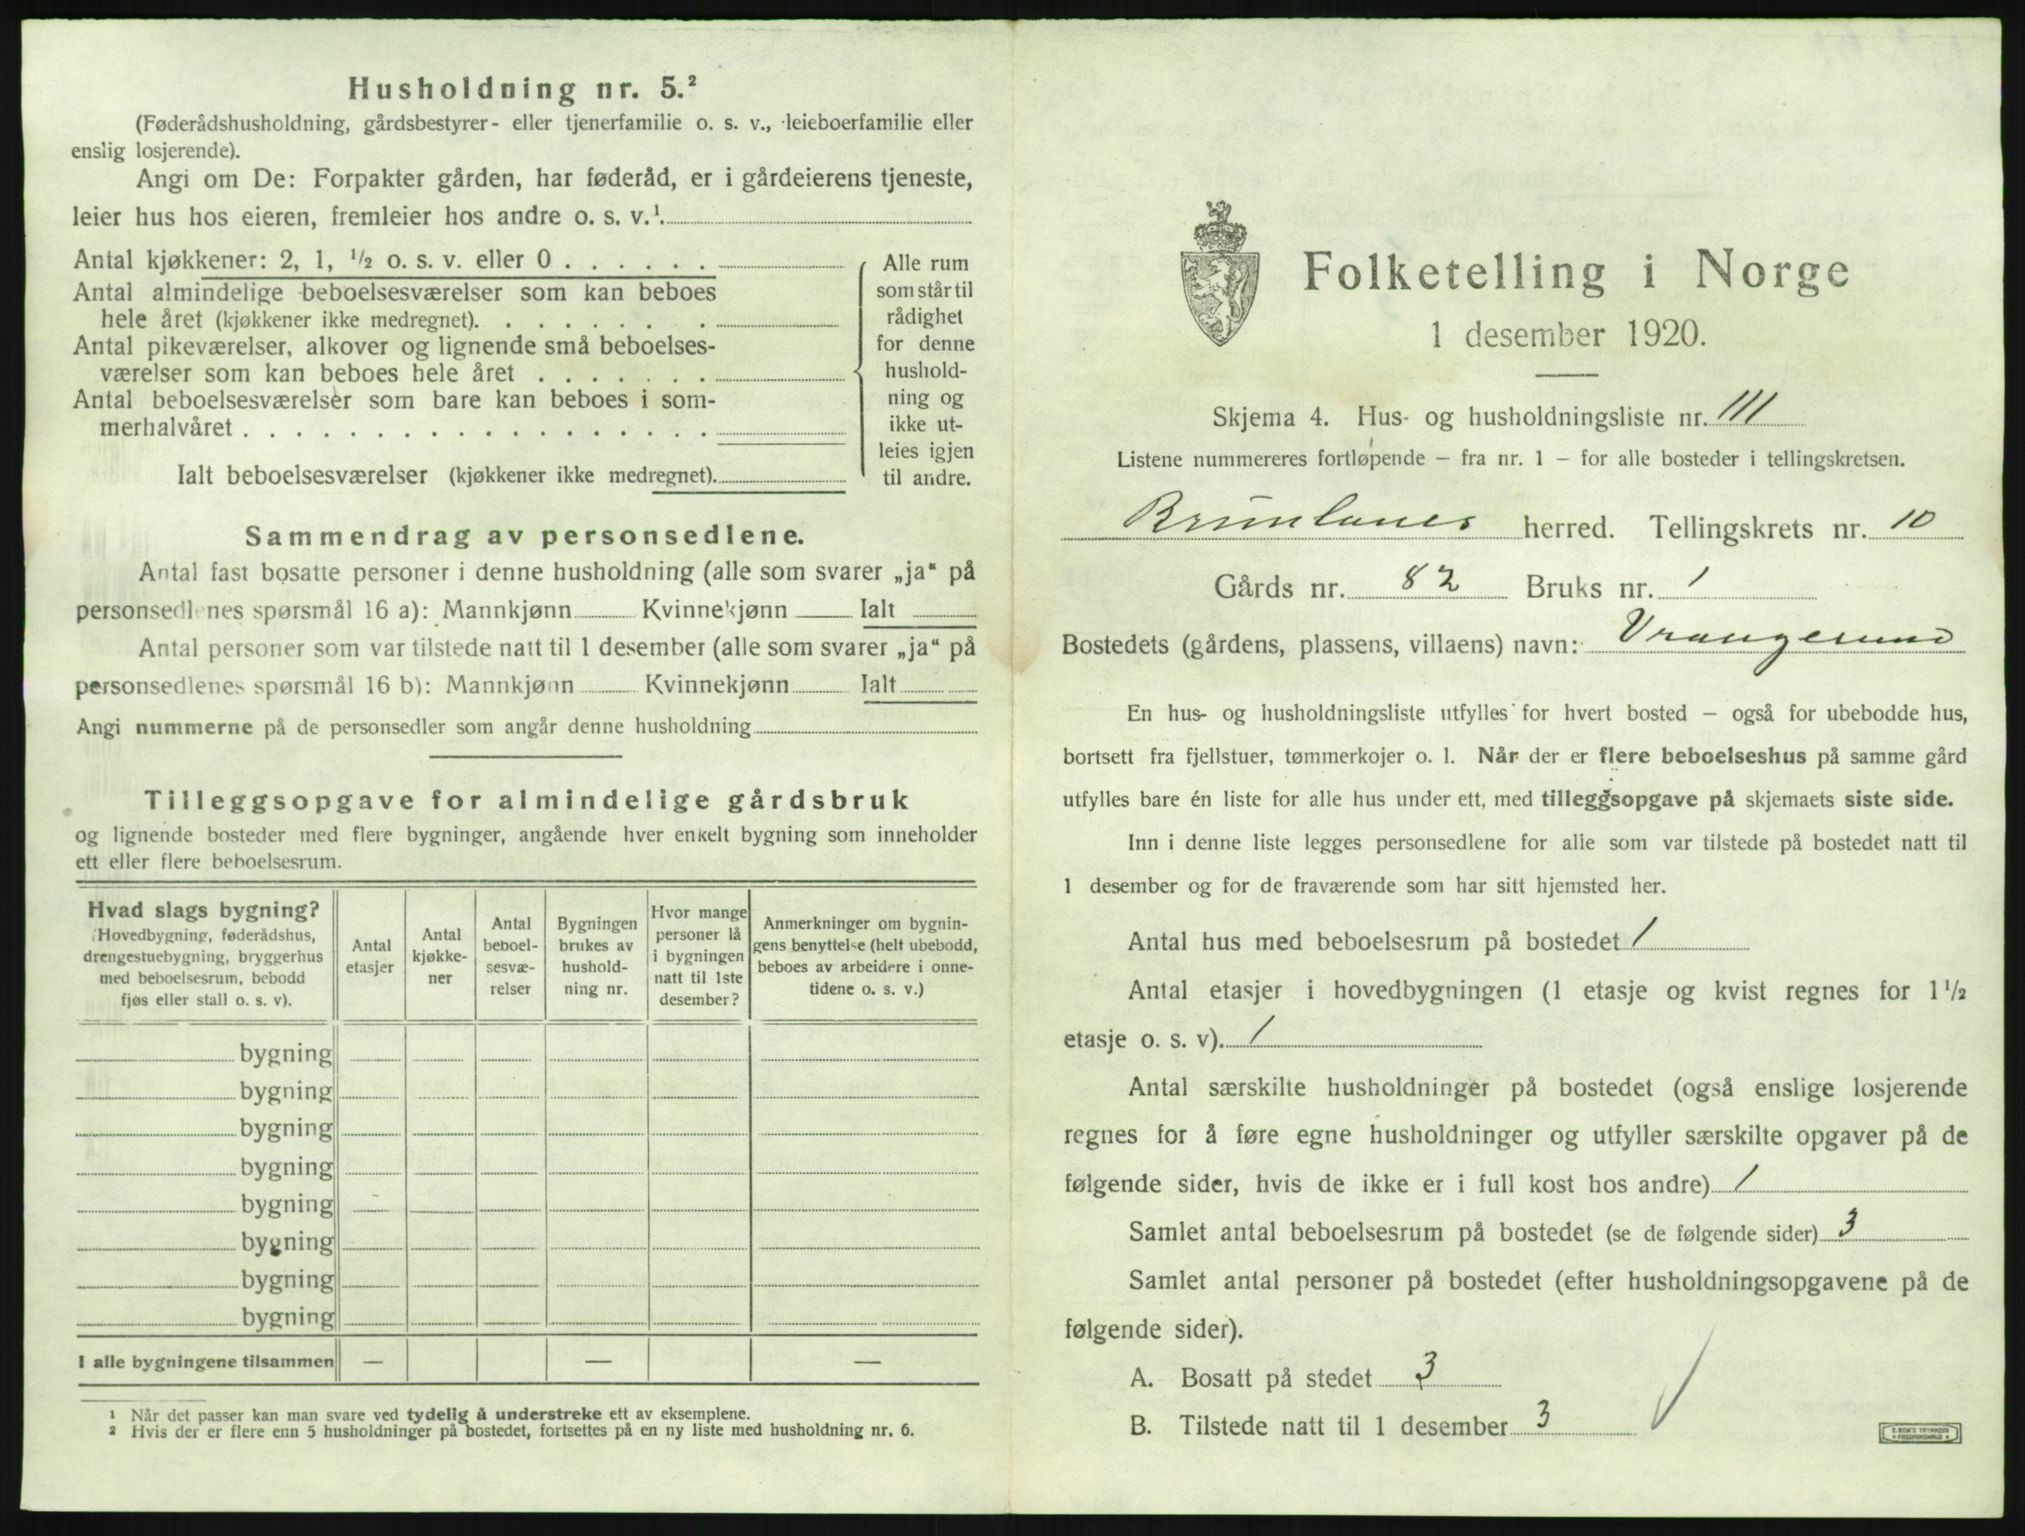 Husholdning nr. 5.²
(Føderådshusholdning, gårdsbestyrer- eller tjenerfamilie o. s. v., leieboerfamilie eller
enslig losjerende).
Angi om De: Forpakter gården, har føderåd, er i gårdeierens tjeneste,
leier hus hos eieren, fremleier hos andre o. s. v.¹.
Antal kjøkkener: 2, 1, ½ o. s. v. eller 0 . . . . . .
Antal almindelige beboelsesværelser som kan beboes
hele året (kjøkkener ikke medregnet). . . . . . . . .
Antal pikeværelser, alkover og lignende små beboelses-
værelser som kan beboes hele året . . . . . . .
Antal beboelsesværelser som bare kan beboes i som-
merhalvåret . . . . . . . . . . . . . . . . . .
Ialt beboelsesværelser (kjøkkener ikke medregnet).
Alle rum
som står til
rådighet
for denne
hushold-
ning og
ikke ut-
leies igjen
til andre.
Sammendrag av personsedlene.
Antal fast bosatte personer i denne husholdning (alle som svarer „ja“ på
personsedlenes spørsmål 16 a): Mannkjønn Kvinnekjønn Ialt
Antal personer som var tilstede natt til 1 desember (alle som svarer „ja“ på
personsedlenes spørsmål 16 b): Mannkjønn Kvinnekjønn Ialt
Angi nummerne på de personsedler som angår denne husholdning
Tilleggsopgave for almindelige gårdsbruk
og lignende bosteder med flere bygninger, angående hver enkelt bygning som inneholder
ett eller flere beboelsesrum.
Hvad slags bygning?
(Hovedbygning, føderådshus,
drengestuebygning, bryggerhus
med beboelsesrum, bebodd
fjøs eller stall o. s. v).
Antal
etasjer
Antal
kjøkke-
ner
Antal
beboel-
sesvæ-
relser
Bygningen
brukes av
hushold-
ning nr.
Hvor mange
personer lå
i bygningen
natt til 1ste
desember?
Anmerkninger om bygnin-
gens benyttelse (helt ubebodd,
beboes av arbeidere i onne-
tidene o. s. v.)
bygning
bygning
bygning
bygning
bygning
bygning
bygning
bygning
I alle bygningene tilsammen — — —
¹ Når det passer kan man svare ved tydelig å understreke ett av eksemplene.
² Hvis der er flere enn 5 husholdninger på bostedet, fortsettes på en ny liste med husholdning nr. 6.
Folketelling i Norge
1 desember 1920.
Skjema 4. Hus- og husholdningsliste nr. 111
Listene nummereres fortløpende – fra nr. 1 – for alle bosteder i tellingskretsen.
Brunlanes herred. Tellingskrets nr. 10
Gårds nr. 82 Bruks nr. 1
Bostedets (gårdens, plassens, villaens) navn: Vrangesund
En hus- og husholdningsliste utfylles for hvert bosted – også for ubebodde hus,
bortsett fra fjellstuer, tømmerkojer o. l. Når der er flere beboelseshus på samme gård
utfylles bare én liste for alle hus under ett, med tilleggsopgave på skjemaets siste side.
Inn i denne liste legges personsedlene for alle som var tilstede på bostedet natt til
1 desember og for de fraværende som har sitt hjemsted her.
Antal hus med beboelsesrum på bostedet 1
Antal etasjer i hovedbygningen (1 etasje og kvist regnes for 1½
etasje o. s. v). 1
Antal særskilte husholdninger på bostedet (også enslige losjerende
regnes for å føre egne husholdninger og utfyller særskilte opgaver på de
følgende sider, hvis de ikke er i full kost hos andre) 1
Samlet antal beboelsesrum på bostedet (se de følgende sider) 3
Samlet antal personer på bostedet (efter husholdningsopgavene på de
følgende sider).
A. Bosatt på stedet 3
B. Tilstede natt til 1 desember 3